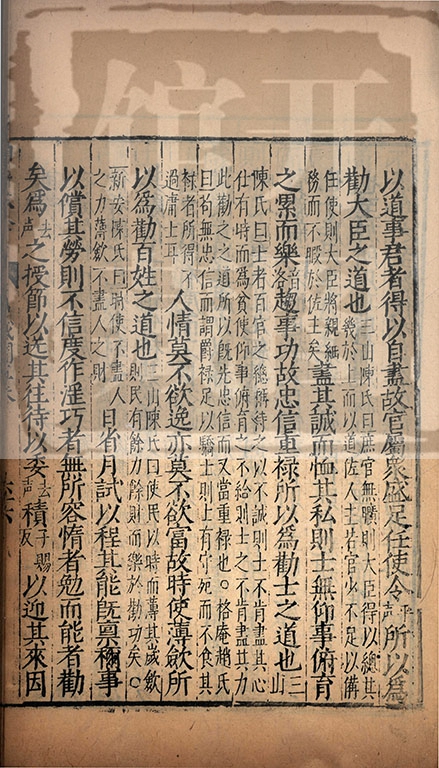 以道事君者得以自盡故官屬衆盛足任使令平聲所以爲
勸大臣之道也三山陳氏曰庶官無曠則大臣得以總其
幾於上而以道佐人主若官少不足以備
任使則大臣將親細
務而不暇於佐主矣盡其誠而恤其私則士無仰事俯育
之累而樂音洛趨事功故忠信重祿所以爲勸士之道也三山
陳氏曰士者百官之總稱待之以不誠則士不肯盡其心
仕有時而爲貧使仰事俯育之不給則士之不肯盡其力
此勸之之道所以旣先忠信而又當重祿也。格庵趙氏
曰苟無忠信而謂爵祿足以驕士則士有守死而不食其
祿者所得不
過庸士耳人情莫不欲逸亦莫不欲富故時使薄斂所
以爲勸百姓之道也三山陳氏曰使民以時而薄其歲斂
則民有餘力餘財而樂於勸功矣。
新安陳氏曰時使不盡人
之力薄斂不盡人之財日省月試以程其能旣稟稱事
以償其勞則不信度作淫巧者無所容惰者勉而能者勸
矣爲去聲之授節以送其往待以委去聲積子賜反以迎其來因